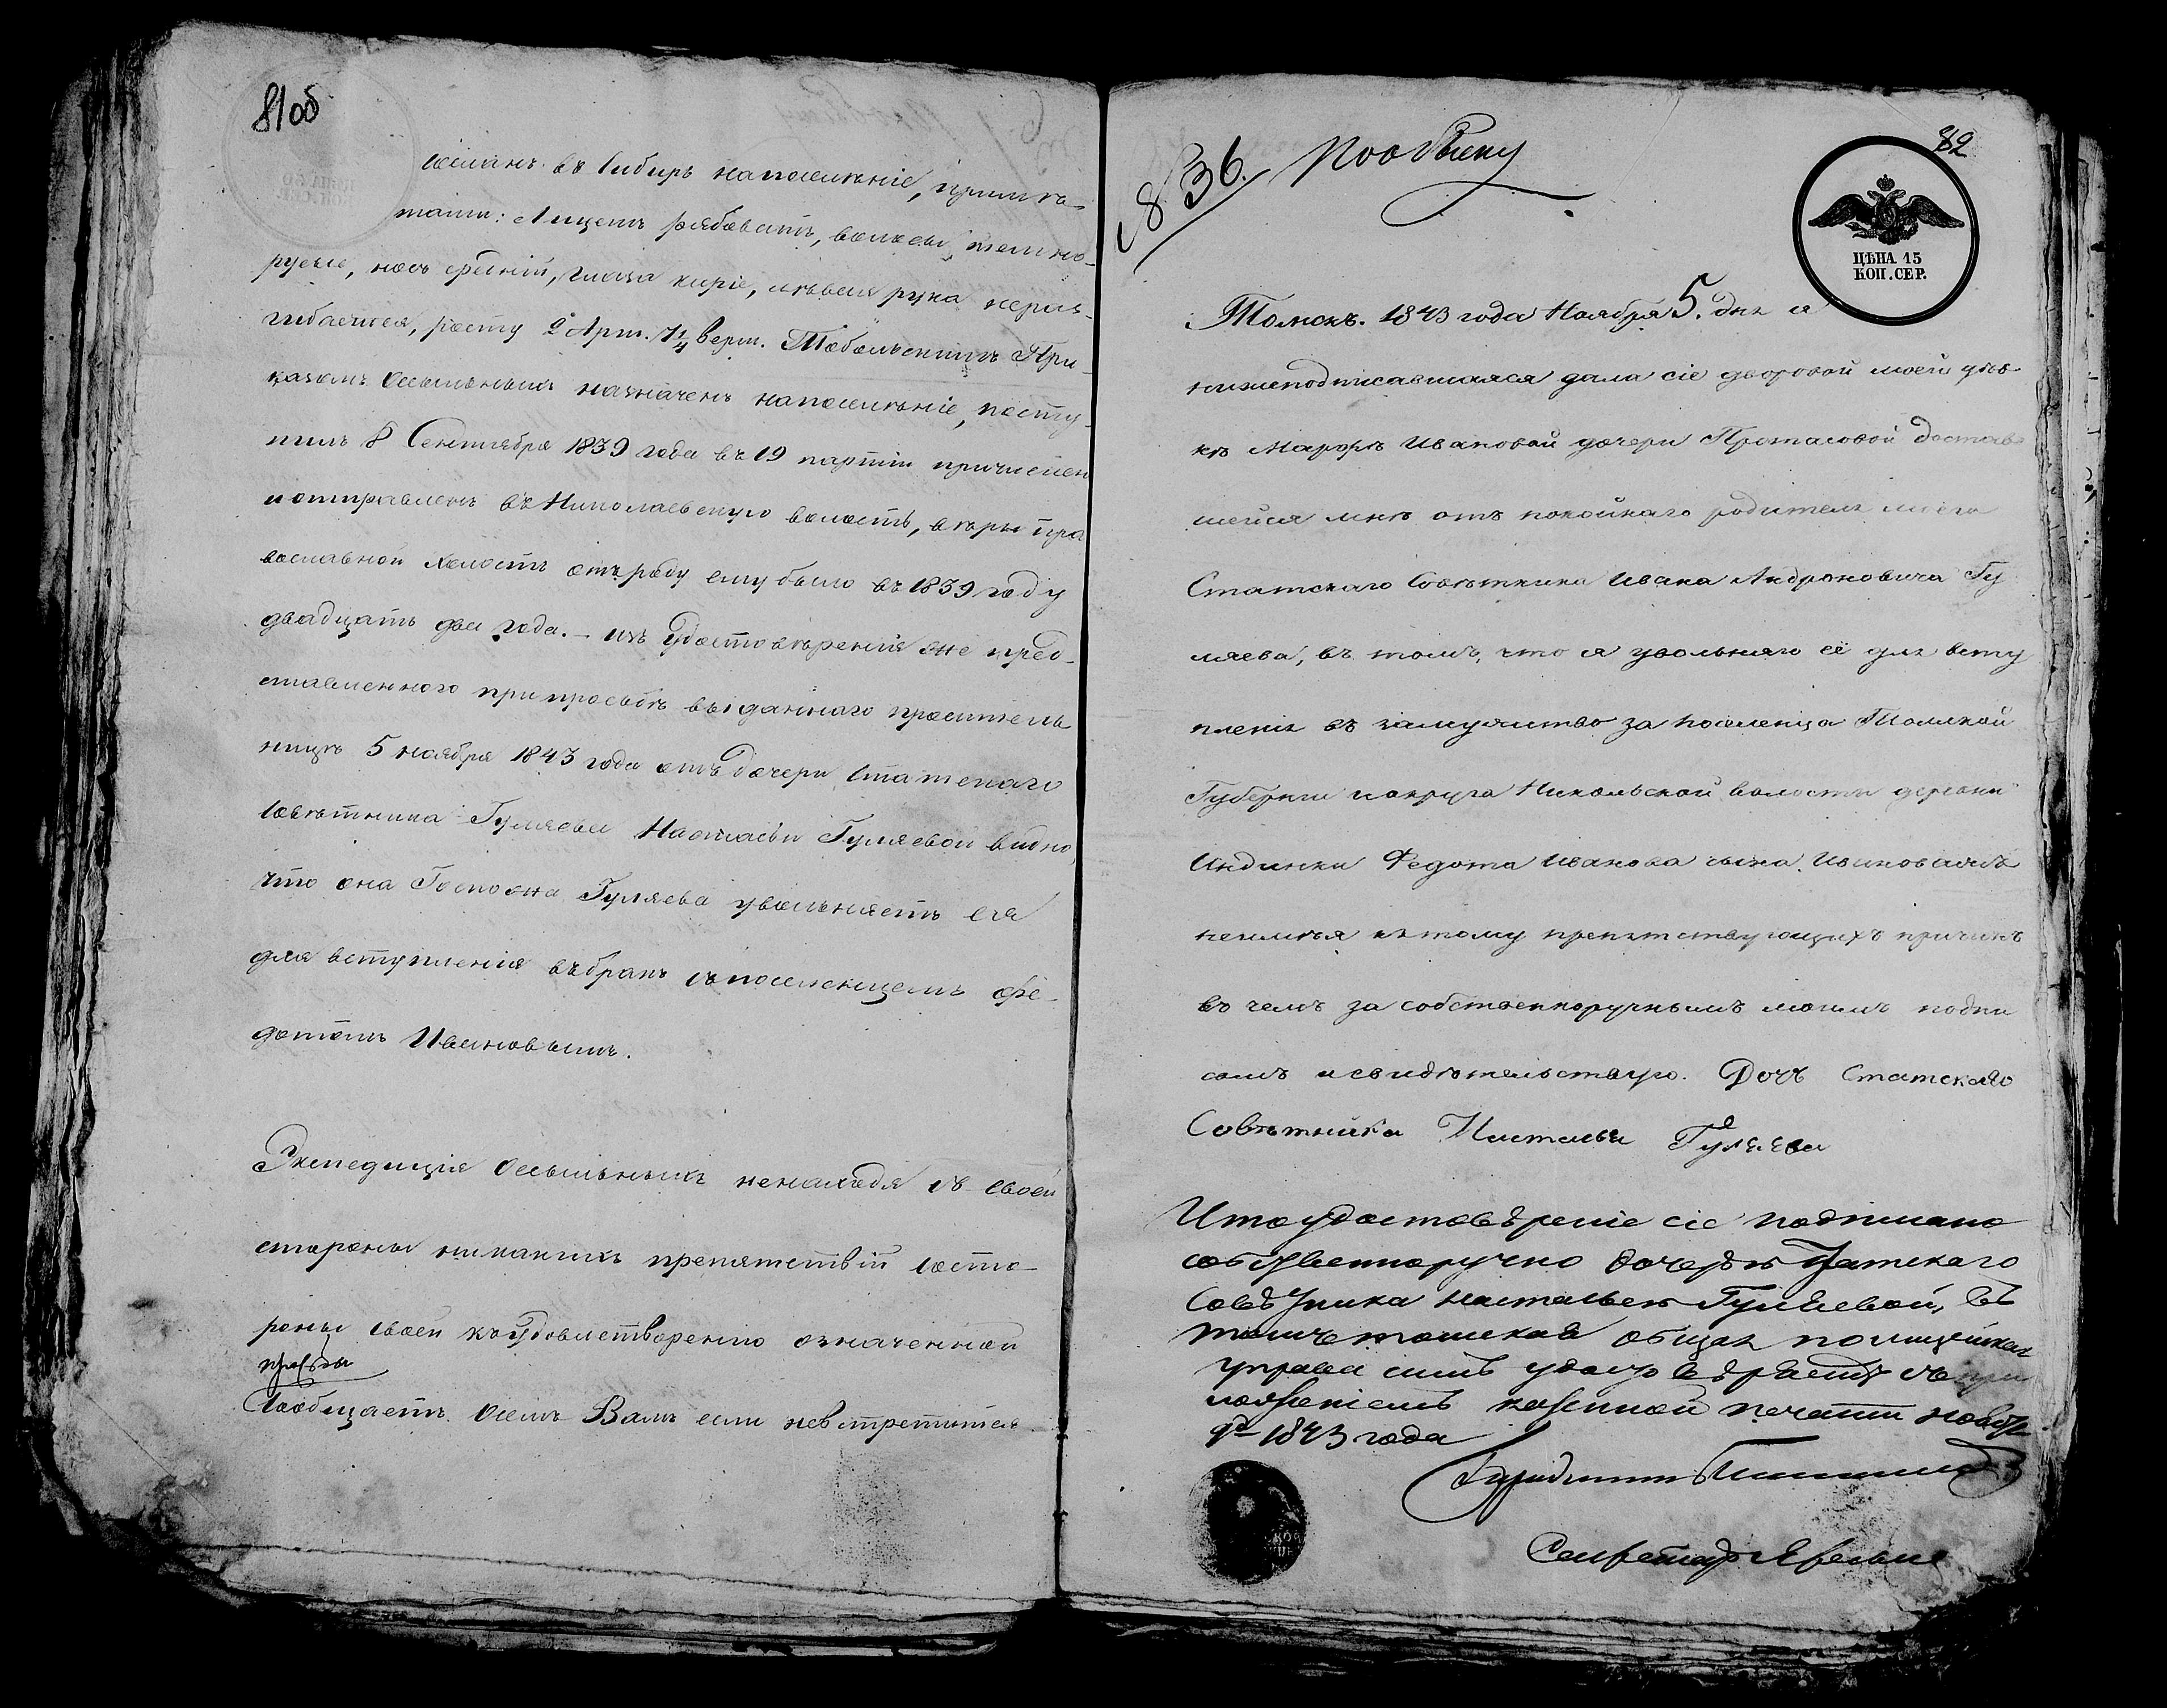 81об
сосланъ въ Сибирь напоселѣніе, примѣ-
тами: Лицемъ рябоватъ, волосы темно-
русые, носъ средній, глаза каріе, лѣвая рука нераз-
гибается, росту 2 Арш. 7 1/4 верш. Тобольскимъ При-
казомъ Ссыльныхъ назначенъ напоселѣніе, посту-
пилъ 8 Сентября 1839 года въ 19 партіи причислен
иотправленъ въ Николаевскую волость, вѣры пра
вославной холостъ отъ роду ему было въ 1839 году
двадцать два года. – изъ Удостовѣренія же пред-
ставленного припросьбѣ выданнаго проситель
ницѣ 5 ноября 1843 года отъ дочери Статскаго
Совѣтника Гуляева Натальи Гуляевой видно,
что она Госпожа Гуляева увольняетъ ея
для вступленія въбракъ съпоселенцемъ Фе-
дотомъ Ивановымъ.
Экспедиція Ссыльныхъ ненаходя съ своей
стороны никакихъ препятствій состо-
роны своей къ удовлетворенію означенной
прозьбы
Сообщаетъ. Осемъ Вамъ если невстретится
82
836. По обыску
ЦѢНА 15
КОП. СЕР.
Томскъ. 1843 года Ноября 5. дня я
нижеподписавшаяся дала сіе дворовой моей дѣв-
кѣ Марфѣ Ивановой дочери Протасовой достав-
шейся мнѣ отъ покойнаго родителя моего
Статскаго Совѣтника Ивана Андроновича Гу
ляева, въ томъ, что я увольняю её для всту
пленія въ замужство за поселенца Томской
Губерніи иокруга Никольской волости деревни
Индинки Федота Иванова сына. Ивановагожъ
неимѣя къ тому препятствующихъ причинъ
въ чемъ за собственноручнымъ моимъ подпи
сомъ исвидѣтельствую. Дочь Статскаго
Совѣтника Наталья Гуляева
Что удостовѣреніе сіе подписано
собственноручно дочерью Статскаго
Совѣтника Натальею Гуляевой, въ
томъ томская общая полицейская
управа симъ удостовѣряетъ съ при
ложеніемъ казенной печати Ноября
1843 года
Секретарь